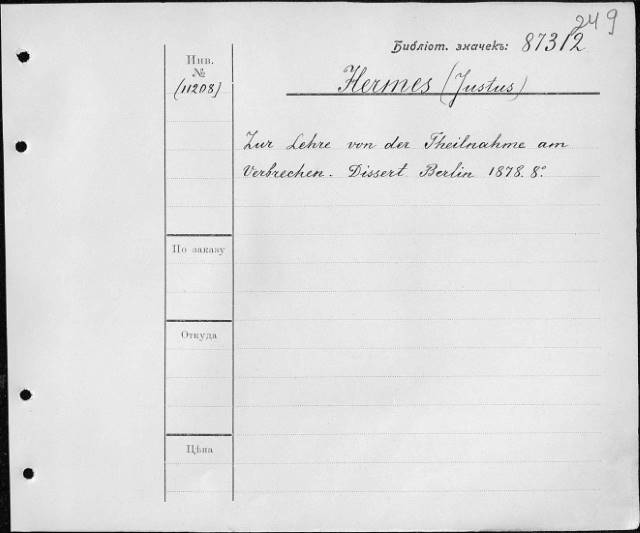 249
Библіот. значекъ: 87312
Инв.
№
(11208)
Hermes (Justus)
Zur Lehre von der Theilnahme am
Verbrechen. Dissert Berlin 1878. 8°.
По заказу
Откуда
Цѣна